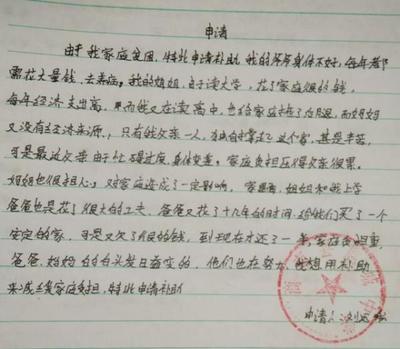 申请
由于我家庭贫困,特此申请补助,我的爷爷身体不好,每年都
需花大量钱去养病,我的姐姐,由于读大学,花了家庭很的钱,
每年经济支出高,而我又在读高中,也给家庭 而妈妈
又没有经济来源,只有父亲一人,独自支撑起了这个家,甚是辛苦,
可是最近父亲由于忙碌过度,身体变差,家庭负担压得父亲很累,
妈妈也很担心,对家庭造成了一定影响,家里面,姐姐和我上学
爸爸也是花了很大的工夫,爸爸又花了十几年的时间,给我们买了一个
安定的家,可是又欠了 的钱,到现在才还了一 家庭负担重,
爸爸,妈妈的白头发日益变的,他们也在努力,我想用补助
来减 家庭负担,特此申请补助
申请人